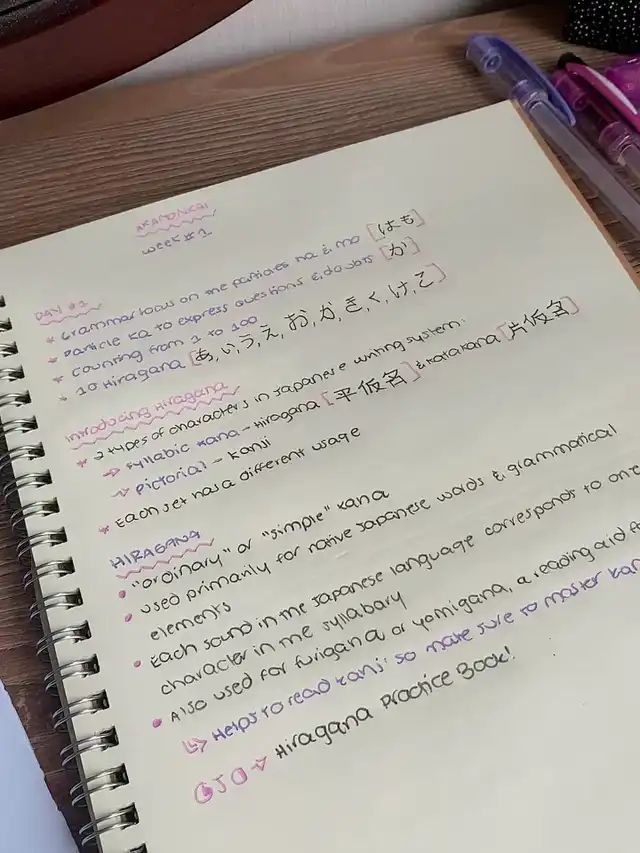 AKAMONKAI
week #1
DAY #1
* Grammar focus on the particles ha & mo [は も]
* Particle ka to express questions & doubts [か]
* Counting from 1 to 100
* 10 Hiragana [あ, い, う, え, お, か, き, く, け, こ]
Introducing Hiragana
* 2 types of characters in Japanese writing system:
→ Syllabic Kana - Hiragana [平仮名] & Katakana [片仮名]
→ Pictorial - Kanji
* Each set has a different usage
HIRAGANA
• "ordinary" or "simple" kana
• used primarily for native Japanese words & grammatical
elements
• Each sound in the Japanese language corresponds to one
character in the syllabary
• Also used for furigana or yomigana, a reading aid
↳ Helps to read kanji so make sure to master
→ Hiragana Practice Book!